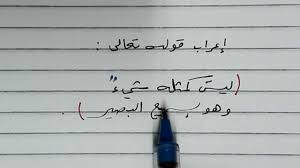 إعراب قوله تعالى :
(ليس كمثله شيءٌ
وهو السميع البصير).